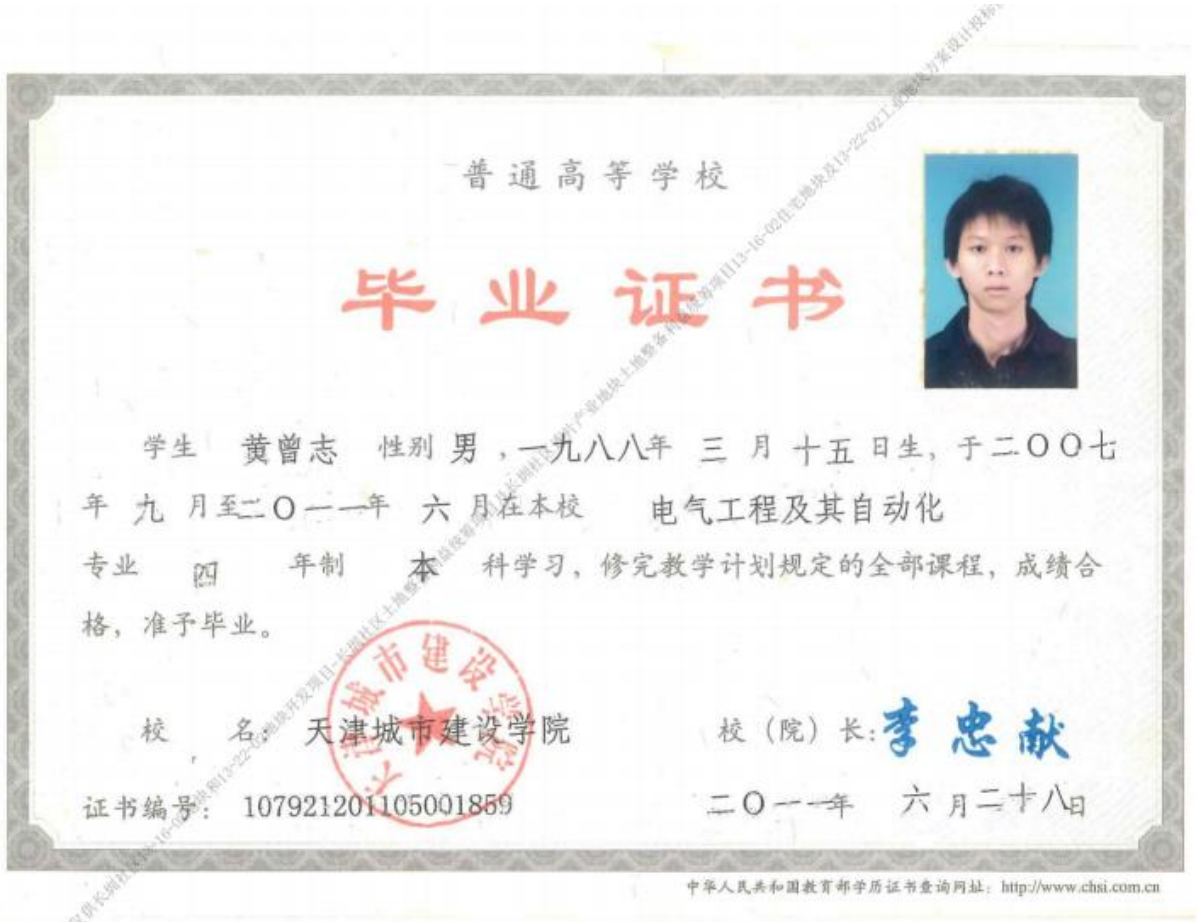 普通高等学校
毕业证书
学生 黄曾志 性别 男，一九八八年 三 月 十五 日生，于二〇〇七
年 九 月至二〇一一年 六 月在本校 电气工程及其自动化
专业 四 年制 本 科学习，修完教学计划规定的全部课程，成绩合
格，准予毕业。
天津城市建设学院
校 名：天津城市建设学院 校（院）长：李忠献
证书编号：107921201105001859 二〇一一年 六 月二十八日
中华人民共和国教育部学历证书查询网址：http://www.chsi.com.cn